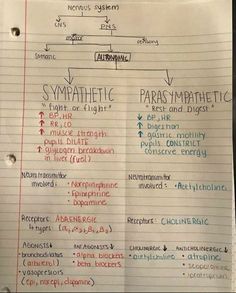 Nervous System
CNS PNS
sensory
Somatic AUTONOMIC
SYMPATHETIC
"fight or flight"
↑ BP, HR
↑ RR, CO
↑ muscle strength
pupils DILATE
↑ glycogen breakdown
in liver (fuel)
Neurotransmitter
involved:
• Norepinephrine
• Epinephrine
• Dopamine
Receptors: ADRENERGIC
4 types
AGONISTS
• bronchodilators
(albuterol)
• vasopressors
(epi, norepi, dopamine)
ANTAGONISTS
• alpha blockers
• beta blockers
PARASYMPATHETIC
"Rest and Digest"
↓ BP, HR
↑ Digestion
↑ gastric motility
pupils CONSTRICT
conserve energy
Neurotransmitter
involved: • Acetylcholine
Receptors: CHOLINERGIC
CHOLINERGIC
ANTICHOLINERGIC
• atropine
• scopolamine
• ipratropium